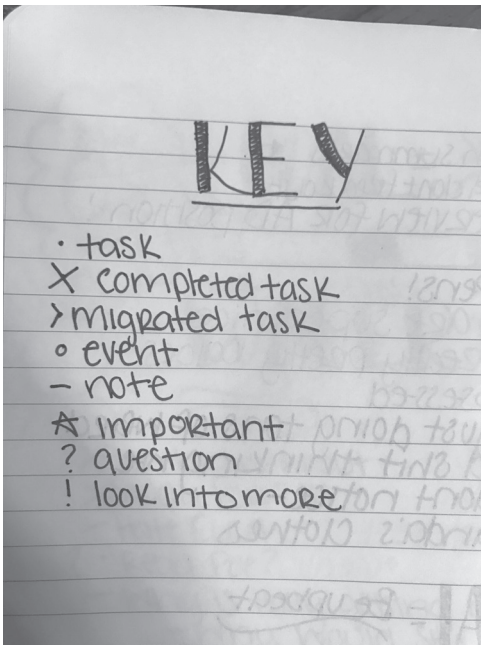 KEY
· task
X completed task
> migrated task
o event
– note
☆ important
? question
! look into more